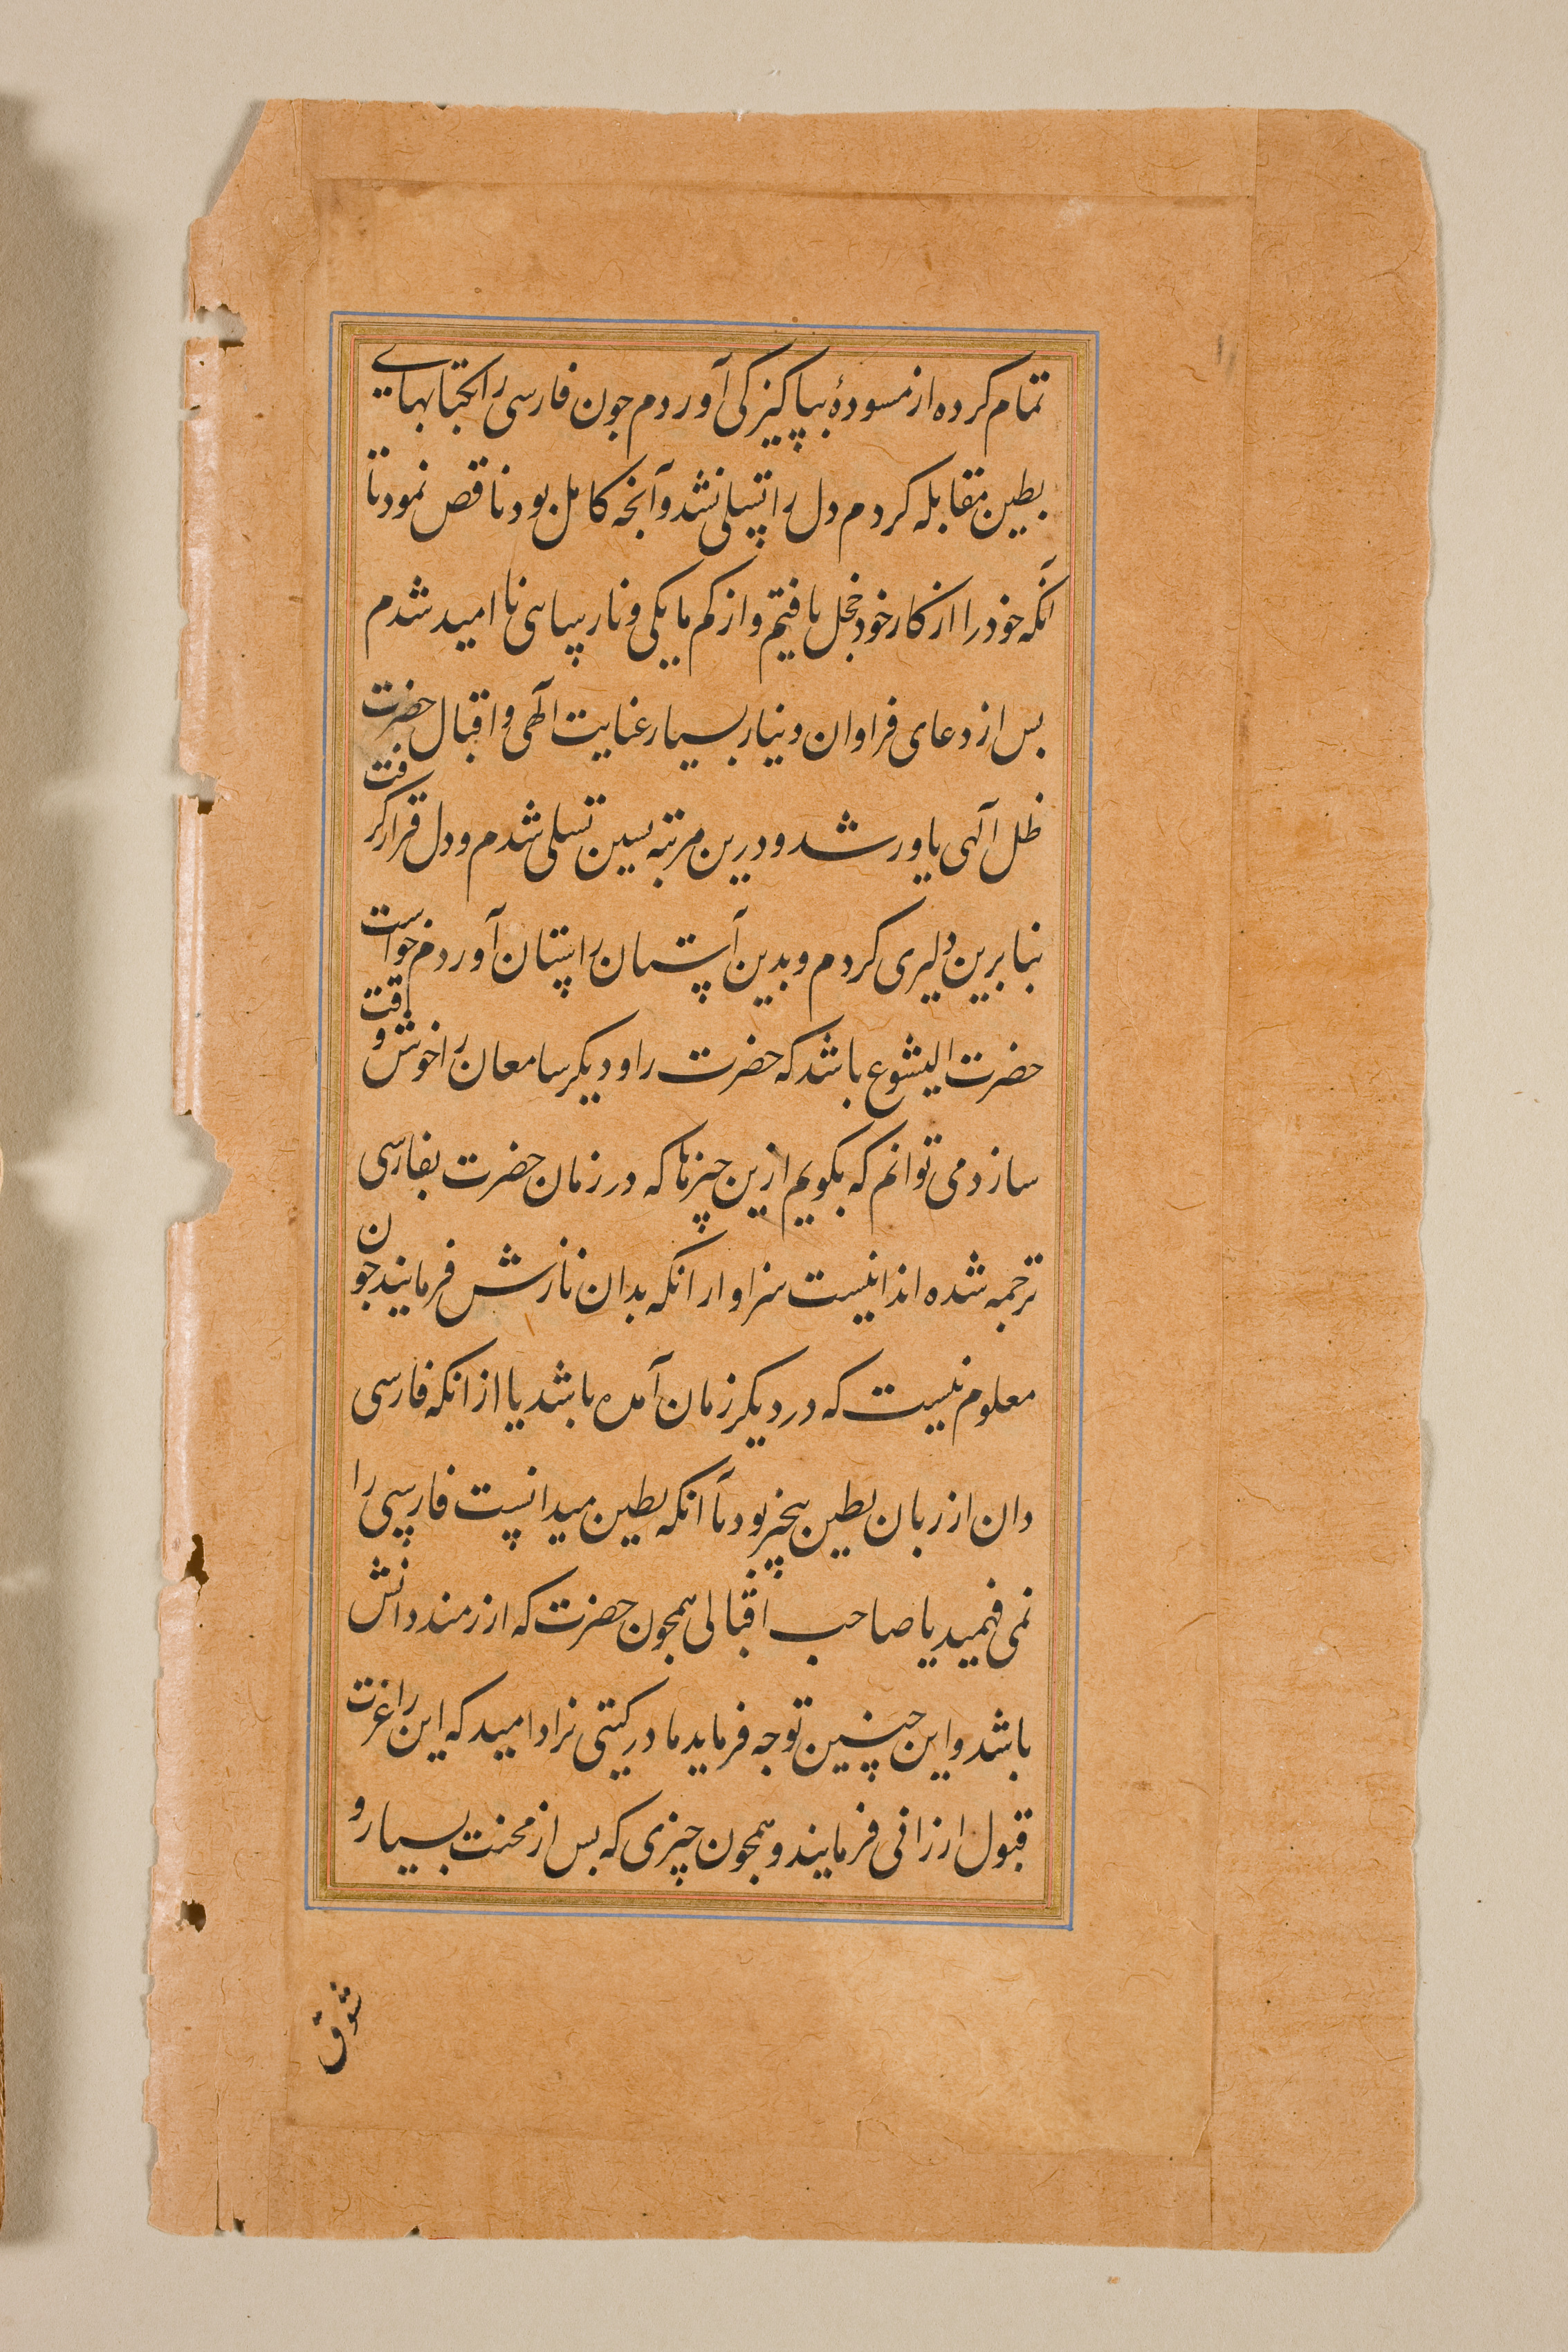 تمام کرده از مسودهٔ بپاکیزکی آوردم جون فارسی را بکتابهای
بطین مقابله کردم دل را تسلی نشد و آنجه کامل بود ناقص نمود تا
آنکه خود را از کار خود خجل یافتم و از کم مایکی و نارسایی نا امید شدم
بس از دعای فراوان و نیاز بسیار عنایت آلهی و اقبال حضرت
ظل آلهی یاور شد و درین مرتبه بسین تسلی شدم و دل قرار کرفت
بنابرین دلیری کردم و بدین آستان راستان آوردم خواست
حضرت ایشوع باشد که حضرت را و دیکر سامعان را خوش وقت
سازد می توانم که بکویم ازین چیزها که در زمان حضرت بفارسی
ترجمه شده اند اینست سزاوار انکه بدان نازش فرمایند جون
معلوم نیست که در دیکر زمان آمده باشد یا از انکه فارسی
دان از زبان بطین بیخبر بود یا آنکه بطین میدانست فارسی را
نمی فهمید یا صاحب اقبالی همجون حضرت که ارزمند دانش
باشد و این جنین توجه فرماید مادر کیتی نزاد امید که این را عزت
قبول ارزانی فرمایند و همجون چیزی که بس از محنت بسیار و
شوق